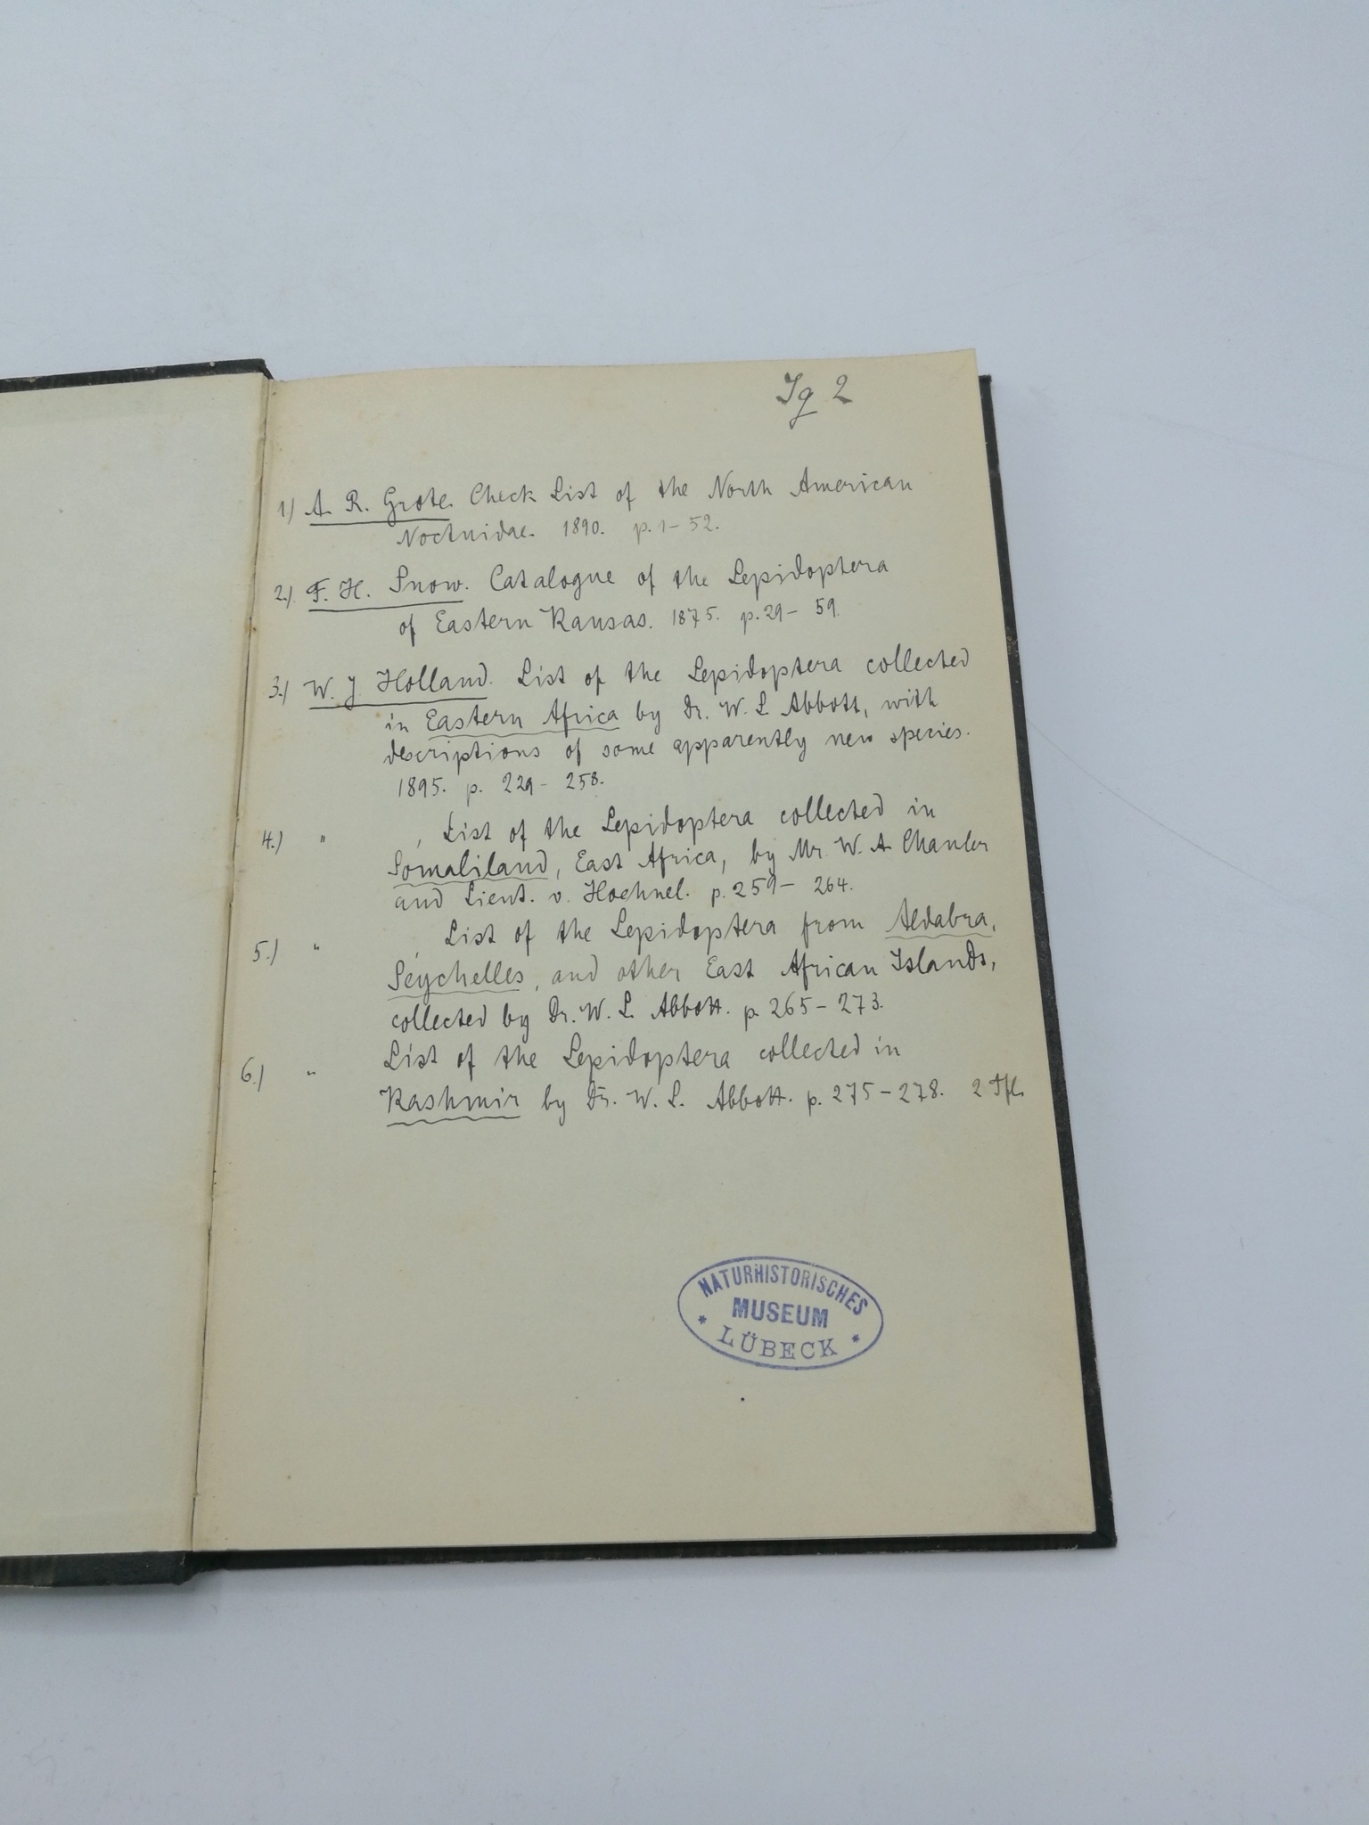 Ig 2
1.) A. R. Grote. Check List of the North American
Noctuidae. 1890. p. 1-52.
2.) F. H. Snow. Catalogue of the Lepidoptera
of Eastern Kansas. 1875. p. 29-59.
3.) W. J. Holland. List of the Lepidoptera collected
in Eastern Africa by Dr. W. L. Abbott, with
descriptions of some apparently new species.
1895. p. 229-258.
4.) " , List of the Lepidoptera collected in
Somaliland, East Africa, by Mr. W. A. Chanler
and Lieut. v. Hoehnel. p. 259-264.
5.) " , List of the Lepidoptera from Aldabra,
Seychelles, and other East African Islands,
collected by Dr. W. L. Abbott. p. 265-273.
6.) " List of the Lepidoptera collected in
Kashmir by Dr. W. L. Abbott. p. 275-278. 2 Tfl.
NATURHISTORISCHES
MUSEUM
* LÜBECK *